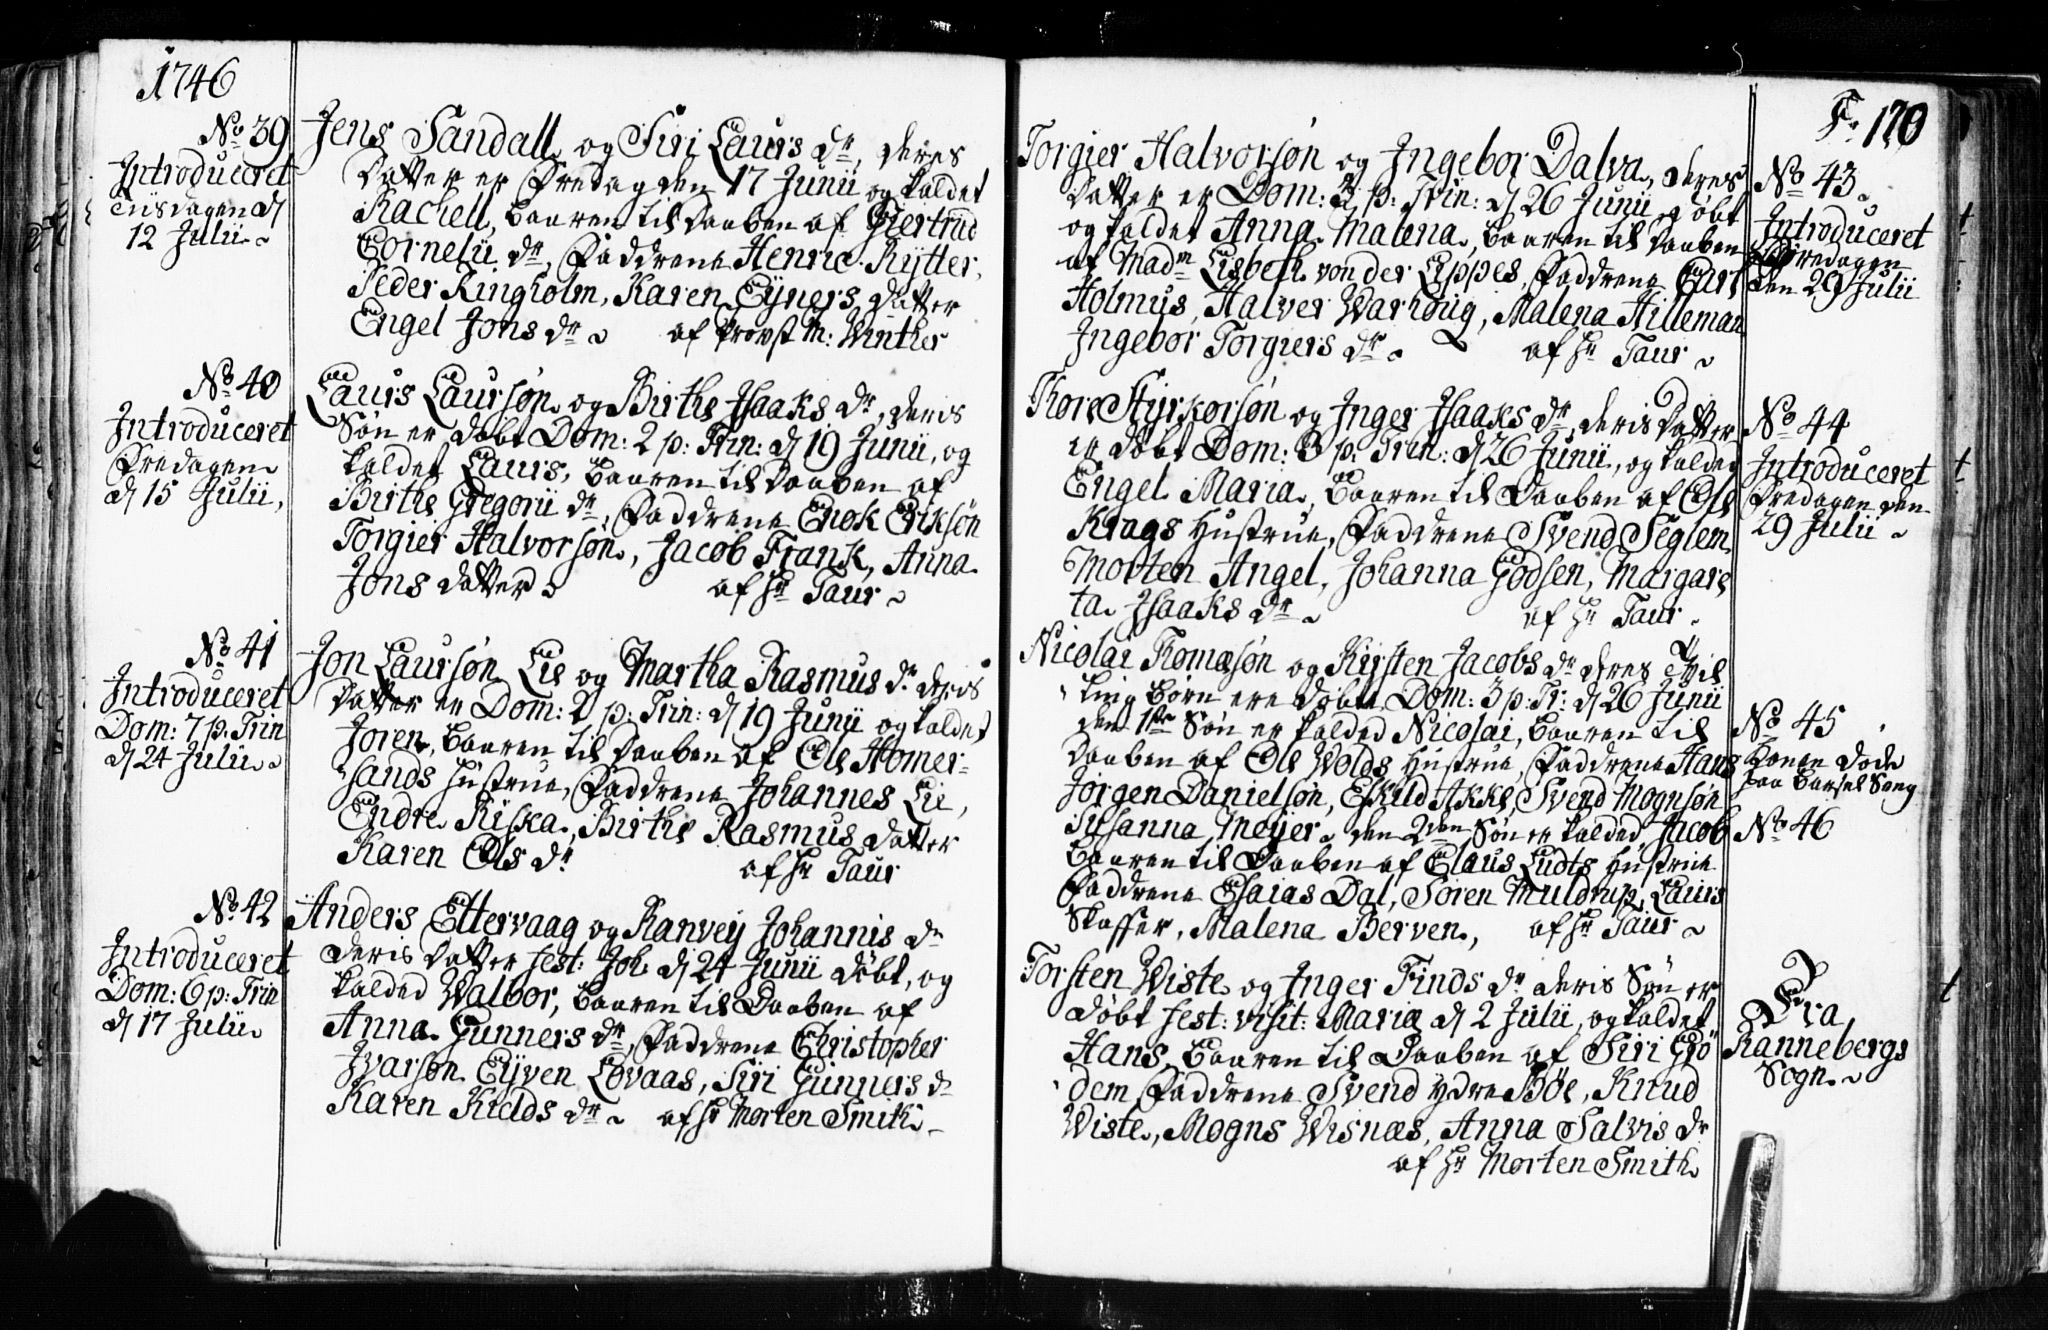 1746
No 39
Introduceret
Tiisdagen d
12 Julii
Jens Sandall og Siri Laurs dr, deres
Datter er Fredag den 17 Junii og kaldet
Rachell, baaren til Daaben af Giertrud
Cornelii dr, Faddrene Henric Rytter,
Peder Ringholm, Karen Eyners datter
Engel Jons dr af Provst M: Winther
No 40
Introduceret
Fredagen
d 15 Julii,
Laurs Laursøn og Birthe Isaaks dr, deris
Søn er døbt Dom: 2 p: Trin: d 19 Junii, og
kaldet Laurs, baaren til Daaben af
Birthe Gregorii dr, Faddrene Enok Eriksøn
Torgier Halvorsøn, Jacob Frank, Anna
Jons datter af Hr Taur
No 41
Introduceret
Dom: 7 p: Trin
d 24 Julii
Jon Laursøn Lie og Martha Rasmus dr deris
Datter er Dom: 2 p: Trin: d 19 Junii og kaldet
Joren, baaren til Daaben af Ole Homer-
sands Hustrue, Faddrene Johannes Lie,
Endre Riska, Birthe Rasmus datter
Karen Ols dr af Hr Taur
No 42
Introduceret
Dom: 6 p: Trin
d 17 Julii
Anders Ettervaag og Ranvey Johannis dr
deris Datter fest: Joh d 24 Junii døbt, og
kalded Walbor, baaren til Daaben af
Anna Gunners dr, Faddrene Christopher
Ivarsøn Eyven Lovaas, Siri Gunners dr
Karen Kields dr af Hr Morten Smith
F. 170
Torgier Halvorsøn og Ingebor Dalva, deres
Datter er Dom: p: Trin: d 26 Junii døbt
og kaldet Anna Malena, baaren til Daaben
af Madm Lisbeth von der Lippes, Faddrene Curt
Holmus, Halver Warhoug, Malena Hilleman
Ingebor Torgiers dr af Hr Taur
No 43
Introduceret
Fredagen
den 29 Julii
Thore Styrkorsøn og Inger Isaaks dr, deris Datter
er døbt Dom: 3 p: Trin: d 26 Junii, og kalded
Engel Maria, baaren til Daaben af Ole
Krags Hustrue, Faddrene Svend Seglem
Morten Angel, Johanna Godsen, Margare
ta Isaaks dr af Hr Taur
No 44
Introduceret
Fredagen den
29 Julii
Nicolai Thomæsøn og Kirsten Jacobs dr deres Tvil
ling børn ere døbte Dom: 3 p: Tr: d 26 Junii
den 1ste Søn er kalded Nicolai, baaren til
Daaben af Ole Wolds Hustrue, Faddrene Hans
Jørgen Danielsøn, Eskild Akke, Svend Mognsøn
Susanna Meyer. den 2den Søn er kalded Jacob
baaren til Daaben af Claus Ludts Hustrue
Faddrene Esaias Dal, Søren Muldrup, Laurs
Skaffer, Malena Berven, af Hr Taur
No 45
Konen døde
paa Barsel Seng
No 46
Torsten Wiste og Inger Finds dr deris Søn er
døbt fest: visit: Mariæ d 2 Julii, og kaldet
Hans, baaren til Daaben af Siri Grö
dem, Faddrene Svend ydre Böe, Knud
Wiste, Mogns Wisnæs, Anna Salvis dr
af Hr Morten Smith
Fra
Rannebergs
Sogn